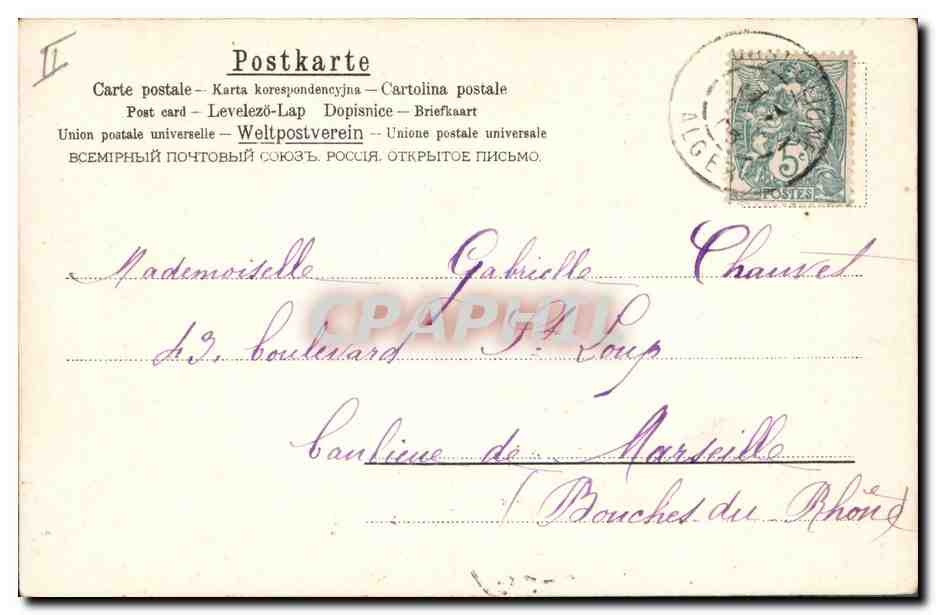 II
Postkarte
Carte postale – Karta korespondencyjna – Cartolina postale
Post card – Levelező-Lap Dopisnice – Briefkaart
Union postale universelle – Weltpostverein – Unione postale universale
ВСЕМІРНЫЙ ПОЧТОВЫЙ СОЮЗЪ. РОССІЯ. ОТКРЫТОЕ ПИСЬМО.
ALGER
5c
POSTES
Mademoiselle Gabrielle Chauvet
43, Boulevard St. Loup
CPAPHIL
Banlieue de Marseille
(Bouches du Rhône)